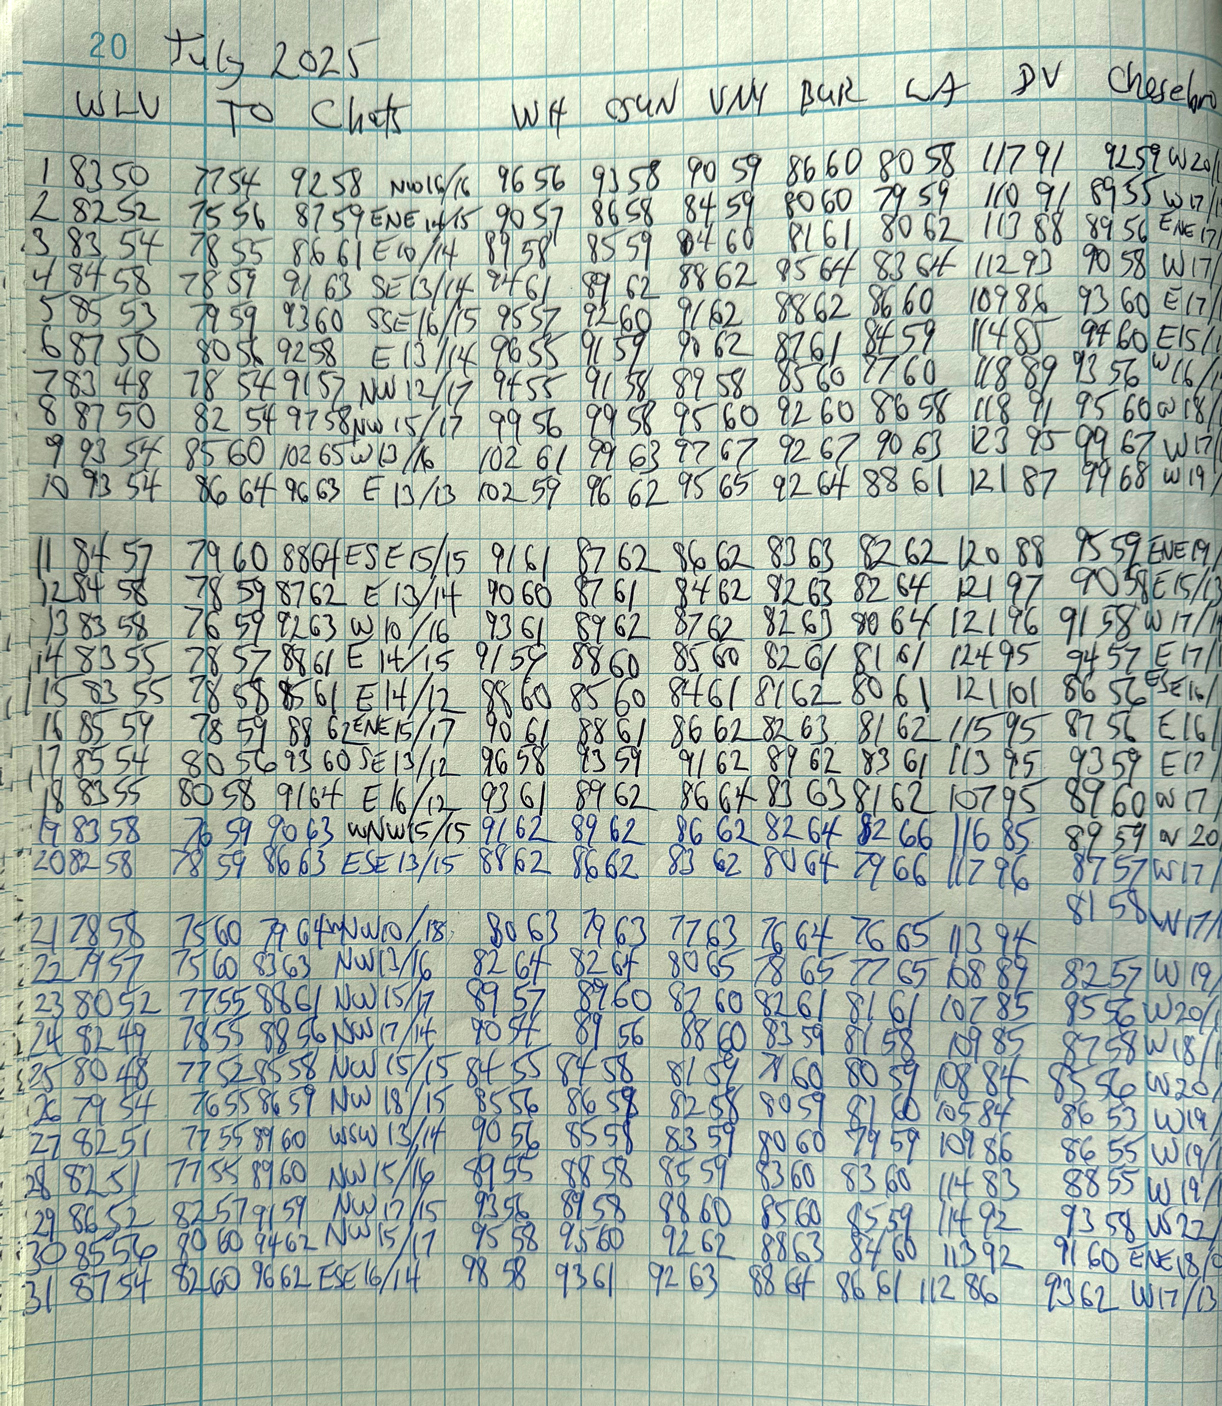 20 July 2025
WLV TO Chats WH CSUN VNY BUR LA DV Chesebro
1 83 50 77 54 92 58 NW 16/16 96 56 93 58 90 59 86 60 80 58 117 91 92 59 W20/
2 82 52 75 56 87 59 ENE 14/15 90 57 86 58 84 59 80 60 79 59 110 91 89 55 W17/
3 83 54 78 55 86 61 E10/14 89 58 85 59 84 60 81 61 80 62 113 88 89 56 ENE 17/
4 84 58 78 59 91 63 SE 13/14 94 61 89 62 88 62 85 64 83 64 112 93 90 58 W17/
5 85 53 79 59 93 60 SSE 16/15 95 57 92 60 91 62 88 62 86 60 109 86 93 60 E17/
6 87 50 80 56 92 58 E 13/14 96 55 91 59 90 62 87 61 84 59 114 85 94 60 E15/
7 83 48 78 54 91 57 NW 12/17 94 55 91 58 89 58 85 60 77 60 118 89 93 56 W16/
8 87 50 82 54 97 58 NW 15/17 99 56 99 58 95 60 92 60 86 58 118 91 95 60 W18/
9 93 54 85 60 102 65 W13/16 102 61 99 63 97 67 92 67 90 63 123 95 99 67 W17/
10 93 54 86 64 96 63 E 13/13 102 59 96 62 95 65 92 64 88 61 121 87 99 68 W19/
11 84 57 79 60 88 64 ESE 15/15 91 61 87 62 86 62 83 63 82 62 120 88 95 59 ENE 19/
12 84 58 78 59 87 62 E 13/14 90 60 87 61 84 62 82 63 82 64 121 97 90 58 E15/13
13 83 58 76 59 92 63 W 10/16 93 61 89 62 87 62 82 63 80 64 121 96 91 58 W17/
14 83 55 78 57 88 61 E 14/15 91 59 88 60 85 60 82 61 81 61 124 95 94 57 E17/
15 83 55 78 58 85 61 E 14/12 88 60 85 60 84 61 81 62 80 61 121 101 86 56 ESE 16/
16 85 59 78 59 88 62 ENE 15/17 90 61 88 61 86 62 82 63 81 62 115 95 87 56 E16/
17 85 54 80 56 93 60 SE 13/12 96 58 93 59 91 62 89 62 83 61 113 95 93 59 E17/
18 83 55 80 58 91 64 E 16/12 93 61 89 62 86 64 83 63 81 62 107 95 89 60 W17/
19 83 58 76 59 90 63 WNW 15/15 91 62 89 62 86 62 82 64 82 66 116 85 89 59 W 20/
20 82 58 78 59 86 63 ESE 13/15 88 62 86 62 83 62 80 64 79 66 117 96 87 57 W17/
21 78 58 75 60 79 64 NW 10/18 80 63 79 63 77 63 76 64 76 65 113 94 81 58 W17/
22 79 57 75 60 83 63 NW 13/16 82 64 82 64 80 65 78 65 77 65 108 89 82 57 W19/
23 80 52 77 55 88 61 NW 15/17 89 57 89 60 87 60 82 61 81 61 107 85 85 56 W20/
24 82 49 78 55 88 56 NW 17/14 90 54 89 56 88 60 83 59 81 58 109 85 87 58 W18/
25 80 48 77 52 85 58 NW 15/15 84 55 84 58 81 59 78 60 80 59 108 84 85 56 W20/
26 79 54 76 55 86 59 NW 18/15 85 56 86 59 82 58 80 59 81 60 105 84 86 53 W19/
27 82 51 77 55 89 60 WSW 13/14 90 56 85 58 83 59 80 60 79 59 109 86 86 55 W19/
28 82 51 77 55 89 60 NW 15/16 89 55 88 58 85 59 83 60 83 60 114 83 88 55 W19/
29 86 52 82 57 91 59 NW 17/15 93 56 89 58 88 60 85 60 85 59 114 92 93 58 W22/
30 85 56 80 60 94 62 NW 15/17 95 58 95 60 92 62 88 63 84 60 113 92 91 60 ENE 18/
31 87 54 82 60 96 62 ESE 16/14 98 58 93 61 92 63 88 64 86 61 112 86 93 62 W17/13